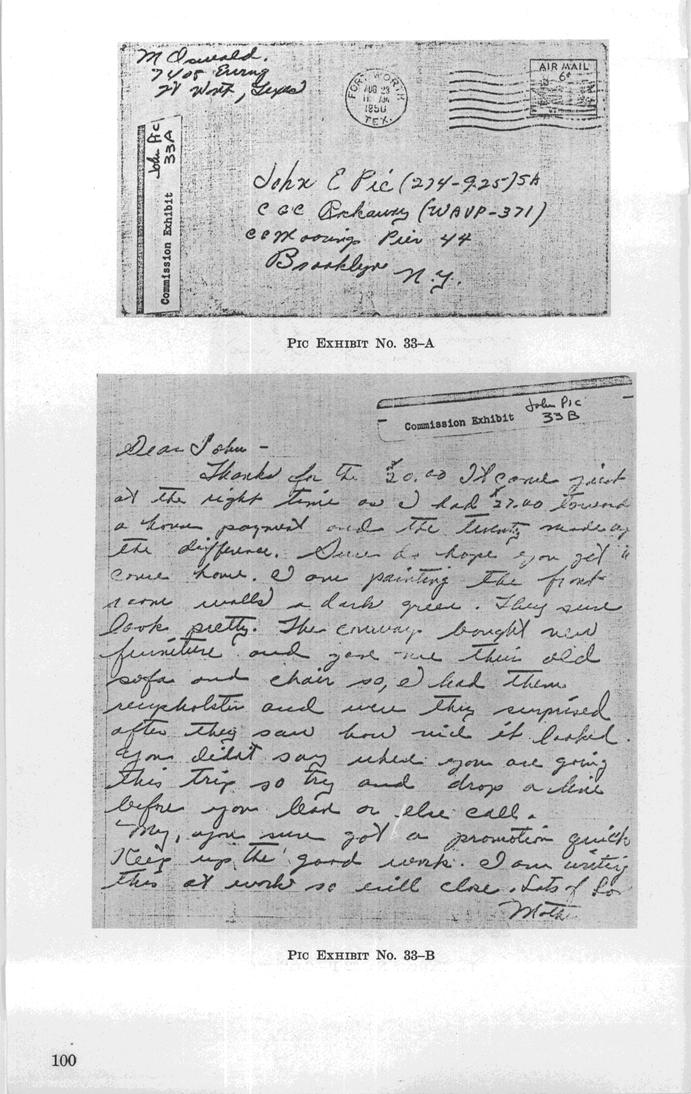 M Oswald.
7408 Ewing
Ft Worth, Texas
John Pic
33A
Commission Exhibit
FORT WORTH
AUG 23
1950
TEX.
AIR MAIL
6¢
John E Pic (274-925) SA
C G C Rockaway (WAVP-371)
C G Moorings Pier 44
Brooklyn N.Y.
PIC EXHIBIT NO. 33-A
Commission Exhibit
John Pic
33B
Dear John -
Thanks for the $20.00 It come just
at the right time as I had $27.00 toward
a house payment and the twenty made up
the difference. Sure do hope you get to
come home. I am painting the front
room walls a dark green. They sure
look pretty. The conways bought new
furniture and gave me their old
sofa and chair so, I had them
reupholster and were they surprised
after they saw how nice it looked.
You didn't say where you are going
this trip so try and drop a line
before you leave or else call.
My, you sure got a promotion quick
Keep up the good work. I am writing
this at work so will close. Lots of Lov
Mothe
PIC EXHIBIT NO. 33-B
100